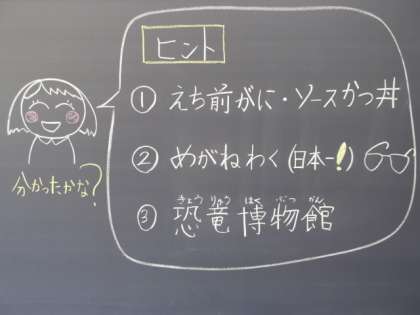 ヒント
① えち前がに・ソースかつ丼
② めがねわく(日本一!)
きょうりゅうはくぶつかん
③ 恐竜博物館
分かったかな?